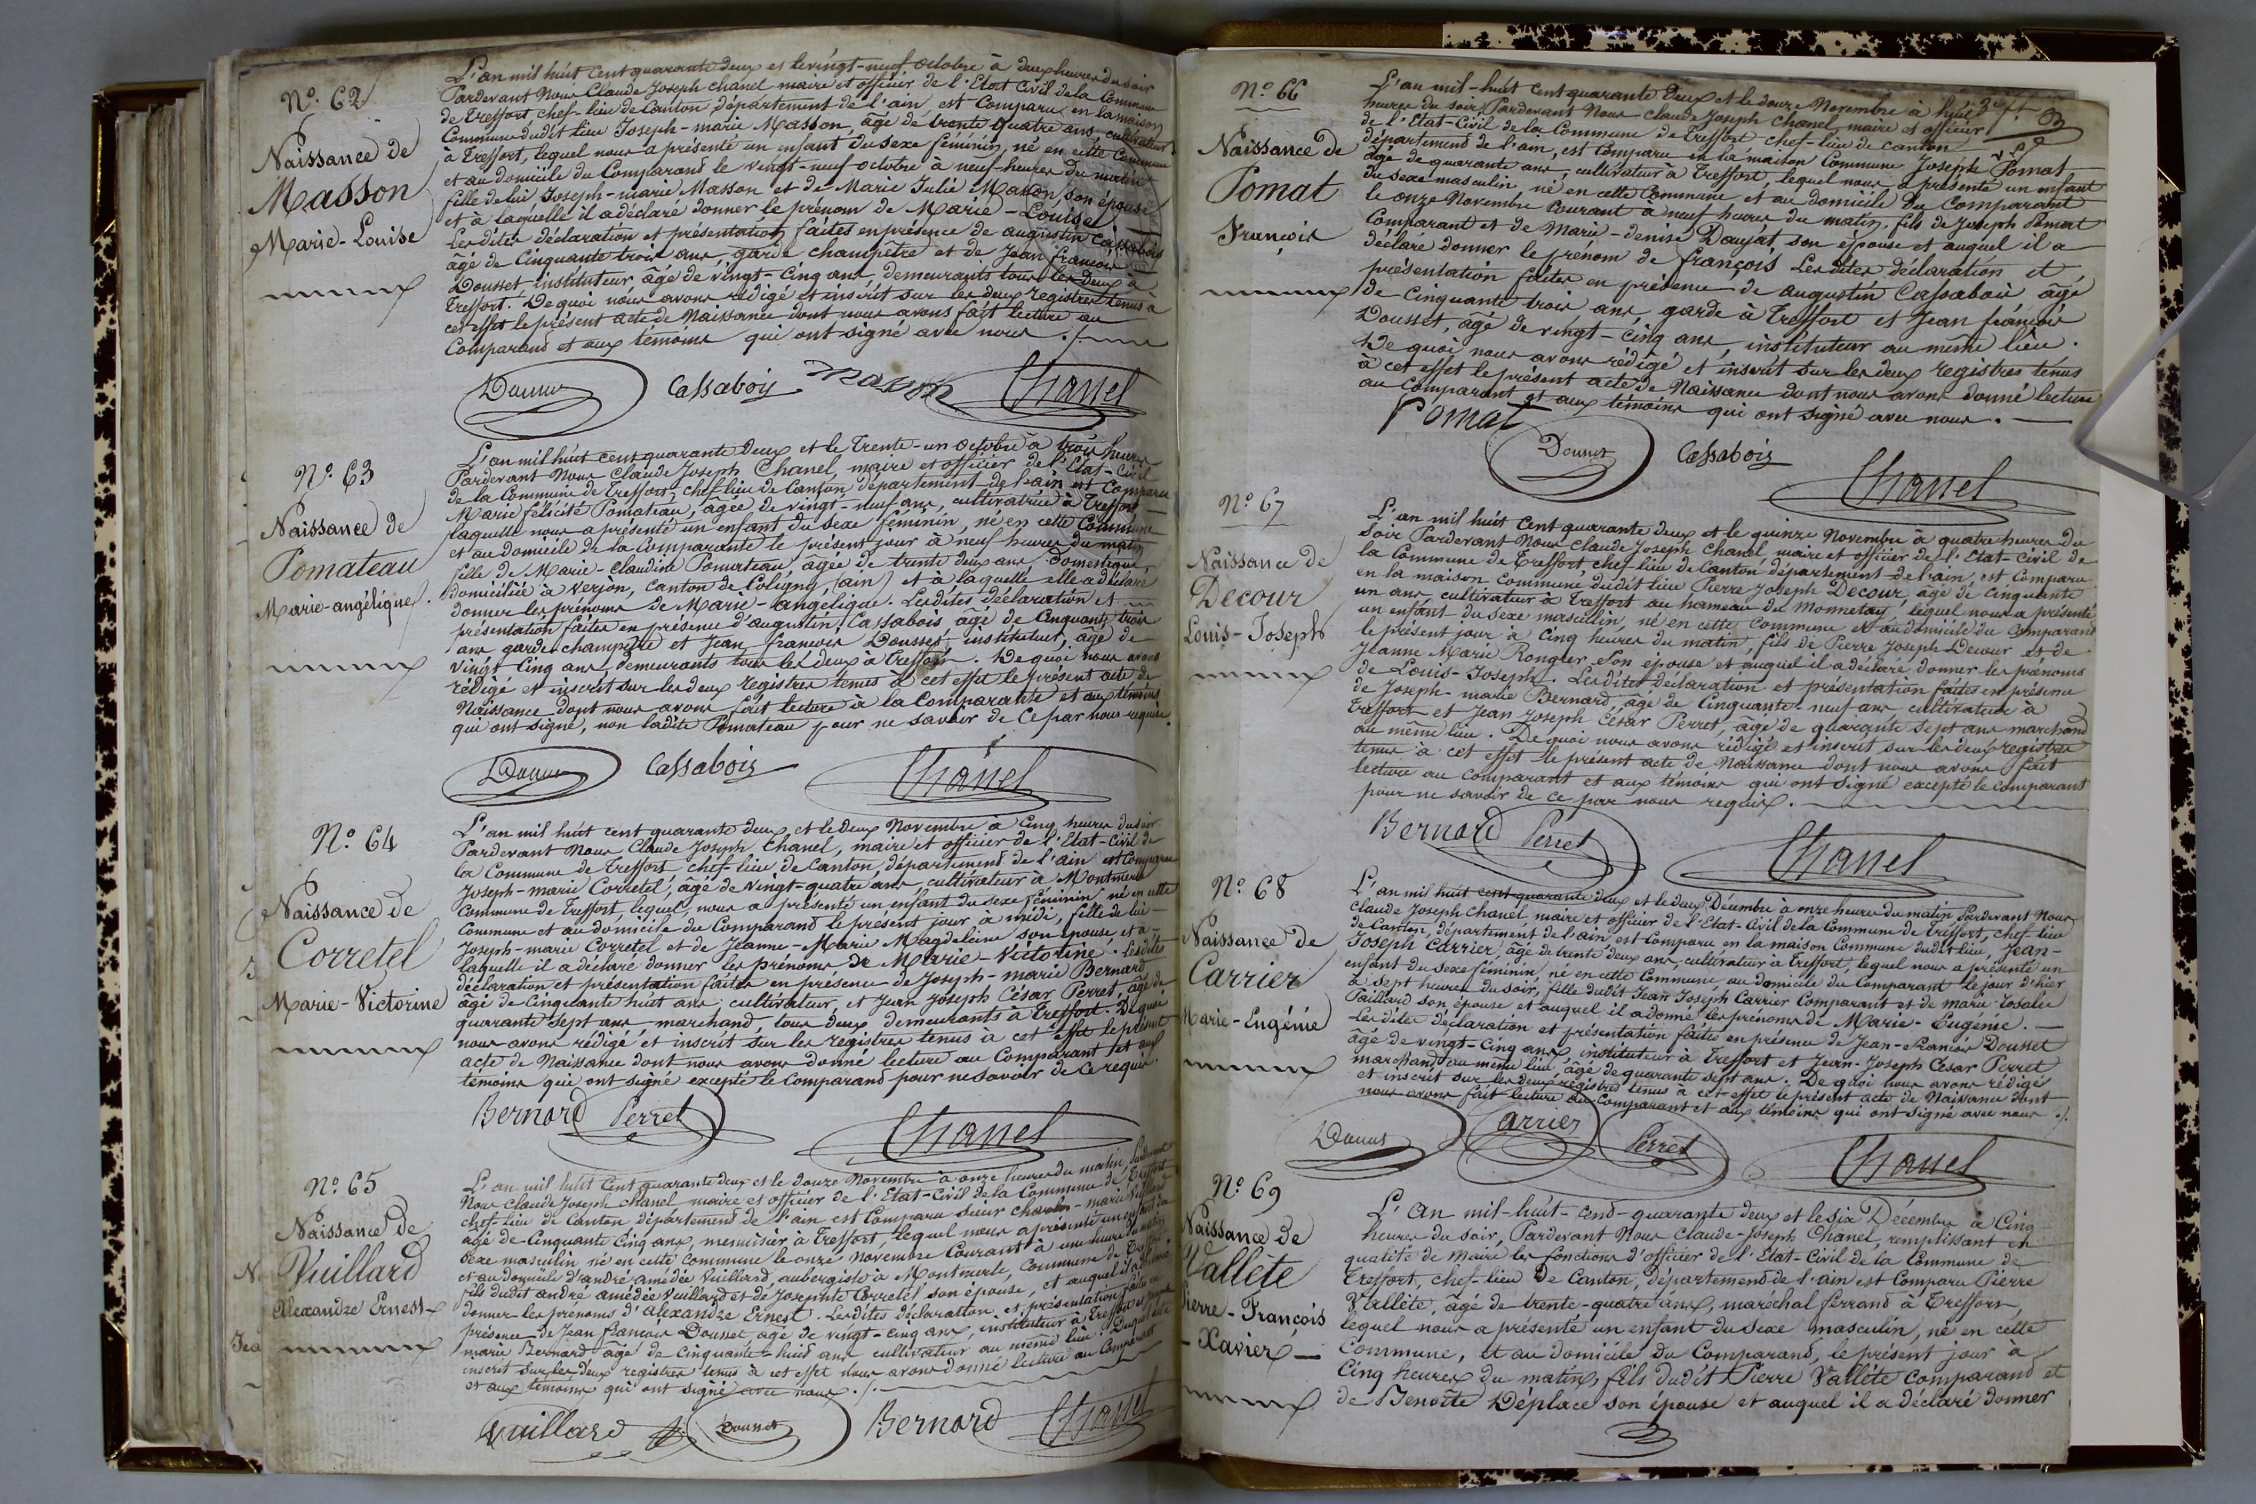 N.º 62
Naissance de
Masson
Marie-Louise
L'an mil huit cent quarante deux et le vingt-neuf octobre à deux heures du soir
Pardevant Nous Claude Joseph Chanel maire et officier de l'Etat Civil de la Commune
de Treffort, chef-lieu de Canton, département de l'ain est Comparu en la maison
Commune dudit lieu Joseph-marie Masson, âgé de trente quatre ans, cultivateur
à Treffort, lequel nous a présenté un enfant du sexe féminin, né en cette Commune
et au domicile du Comparand le vingt-neuf octobre à neuf heures du matin
fille de lui Joseph-marie Masson et de Marie Julie son épouse
et à laquelle il a déclaré donner le prénom de Marie-Louise
Lesdites déclaration et présentation faites en présence de augustin Cassabois
âgé de Cinquante trois ans, garde champêtre et de Jean françois
Dousset instituteur âgé de vingt-Cinq ans, demeurants tous les deux à
Treffort. De quoi nous avons rédigé et inscrit sur les deux registres tenus à
cet effet le présent acte de Naissance dont nous avons fait lecture au
Comparand et aux témoins qui ont signé avec nous ./.
Dousset Cassabois Masson Chanel
N.º 63
Naissance de
Pomateau
Marie-angélique.
L'an mil huit cent quarante deux et le Trente-un octobre à trois heures
Pardevant Nous Claude Joseph Chanel, maire et officier de l'Etat-Civil
de la Commune de Treffort, chef-lieu de Canton, département de l'ain est Comparu
Marie félicité Pomateau, âgée de vingt-neuf ans, cultivatrice à Treffort
laquelle nous a présenté un enfant du sexe féminin, né en cette Commune
et au domicile de la Comparante le présent jour à neuf heures du matin
fille de Marie-Claudine Pomateau âgée de trente deux ans Domestique,
domiciliée à Verjon, Canton de Coligny, (ain) et à laquelle elle a déclaré
donner les prénoms de Marie-angélique. Lesdites déclaration et
présentation faites en présence d'augustin Cassabois âgé de Cinquante trois
ans garde champêtre et Jean françois Dousset instituteur, âgé de
vingt Cinq ans, demeurants tous les deux à Treffort. De quoi nous avons
rédigé et inscrit sur les deux registres tenus à cet effet le présent acte de
Naissance dont nous avons fait lecture à la Comparante et aux témoins
qui ont signé, non ladite Pomateau pour ne savoir de ce par nous requise.
Dousset Cassabois Chanel
N.º 64
Naissance de
Corretel
Marie-Victorine
L'an mil huit cent quarante deux et le deux Novembre à Cinq heures du soir
Pardevant Nous Claude Joseph Chanel, maire et officier de l'Etat-Civil de
la Commune de Treffort chef-lieu de Canton, département de l'ain est Comparu
Joseph-marie Corretel, âgé de vingt-quatre ans, cultivateur à Montmerle
Commune de Treffort, lequel, nous a présenté un enfant du sexe féminin né en cette
Commune et au domicile du Comparand le présent jour à midi, fille de lui
Joseph-marie Corretel et de Jeanne-Marie Magdeleine son épouse et à
laquelle il a déclaré donner les prénoms de Marie-Victorine. Lesdites
déclaration et présentation faites en présence de Joseph-marie Bernard
âgé de Cinquante huit ans, cultivateur, et Jean Joseph César Perret, âgé de
quarante sept ans marchand, tous deux demeurants à Treffort. De quoi
nous avons rédigé et inscrit sur les registres tenus à cet effet le présent
acte de Naissance dont nous avons donné lecture au Comparant et aux
témoins qui ont signé excepté le Comparand pour ne savoir de ce requis.
Bernard Perret Chanel
N.º 65
Naissance de
Vuillard
Alexandre Ernest
L'an mil huit cent quarante deux et le douze Novembre à onze heures du matin, Pardevant
Nous Claude Joseph Chanel maire et officier de l'Etat-Civil de la Commune de Treffort
chef-lieu de Canton département de l'ain est Comparu sieur -marie Vuillard
âgé de Cinquante Cinq ans, menuisier à Treffort lequel nous a présenté un enfant du
sexe masculin né en cette Commune le onze Novembre Courant à une heure du matin
et au domicile d'andré amédée Vuillard, aubergiste à Montmerle, Commune de Treffort
fils dudit andré amédée Vuillard et de Josephte Corretel son épouse, et auquel il a déclaré
donner les prénoms d'alexandre Ernest. Lesdites déclaration, et présentation faites en
présence de Jean françois Dousset, âgé de vingt-cinq ans, instituteur à Treffort et
marie Bernard âgé de Cinquante-huit ans cultivateur au même lieu.
inscrit sur les deux registres tenus à cet effet nous avons donné lecture au Comparant
et aux témoins qui ont signé avec nous ./.
Vuillard Dousset Bernard Chanel
N.º 66
Naissance de
Pomat
François
L'an mil-huit cent quarante Deux et le douze Novembre à huit
heures du soir, Pardevant Nous Claude Joseph Chanel maire et officier
de l'Etat-Civil de la Commune de Treffort chef-lieu de Canton
département de l'ain, est Comparu en la maison Commune Joseph Pomat
âgé de quarante ans, cultivateur à Treffort, lequel nous a présenté un enfant
du sexe masculin né en cette Commune et au domicile du Comparant
le onze Novembre Courant à neuf heures du matin, fils de Joseph Pomat
Comparant et de Marie-denise Daujat son épouse et auquel il a
déclaré donner le prénom de françois Lesdites déclaration et
présentation faites en présence de augustin Cassabois âgé
de Cinquante trois ans garde à Treffort et Jean françois
Dousset, âgé de vingt-Cinq ans, instituteur au même lieu.
De quoi nous avons rédigé et inscrit sur les deux registres tenus
à cet effet le présent acte de Naissance dont nous avons donné lecture
au Comparant et aux témoins qui ont signé avec nous.
Pomat Dousset Cassabois Chanel
N.º 67
Naissance de
Decour
Louis-Joseph
L'an mil huit Cent quarante deux et le quinze Novembre à quatre heures du
soir Pardevant Nous Claude Joseph Chanel maire et officier de l'Etat-Civil de
la Commune de Treffort chef-lieu de Canton département de l'ain, est Comparu
en la maison Commune dudit lieu Pierre Joseph Decour, âgé de Cinquante
un ans, cultivateur à Treffort au hameau de Monnetay lequel nous a présenté
un enfant du sexe masculin, né en cette Commune et au domicile du Comparant
le présent jour à Cinq heures du matin, fils de Pierre Joseph Decour et de
Jeanne Marie Rongier son épouse et auquel il a déclaré donner les prénoms
de Louis-Joseph. Lesdites déclaration et présentation faites en présence
de Joseph-marie Bernard âgé de Cinquante-neuf ans cultivateur à
Treffort et Jean Joseph César Perret, âgé de quarante sept ans marchand
au même lieu. De quoi nous avons rédigé et inscrit sur les deux registres
tenus à cet effet le présent acte de Naissance dont nous avons fait
lecture au Comparant et aux témoins qui ont signé excepté le Comparant
pour ne savoir de ce par nous requis.
Bernard Perret Chanel
N.º 68
Naissance de
Carrier
Marie-Eugénie
L'an mil huit cent quarante deux et le deux Décembre à onze heures du matin Pardevant Nous
Claude Joseph Chanel maire et officier de l'Etat-Civil de la Commune de Treffort, chef-lieu
de Canton, département de l'ain est Comparu en la maison Commune dudit lieu, Jean-
Joseph Carrier, âgé de trente deux ans, cultivateur à Treffort, lequel nous a présenté un
enfant du sexe féminin, né en cette Commune, au domicile du Comparant le jour d'hier
à sept heures du soir, fille dudit Jean Joseph Carrier Comparant et de marie Rosalie
Paillard son épouse et auquel il a donné les prénoms de Marie-Eugénie.
Lesdites déclaration et présentation faites en présence de Jean-François Dousset
âgé de vingt-Cinq ans, instituteur à Treffort et Jean-Joseph César Perret
marchand au même lieu, âgé de quarante sept ans. De quoi nous avons rédigé
et inscrit sur les deux registres tenus à cet effet le présent acte de Naissance dont
nous avons fait lecture au Comparant et aux témoins qui ont signé avec nous ./.
Dousset Carrier Perret Chanel
N.º 69
Naissance de
Vallète
Pierre-François
-Xavier-
L'An mil-huit-cent-quarante deux et le six Décembre à Cinq
heures du soir, Pardevant Nous Claude-Joseph Chanel remplissant en
qualité de Maire les fonctions d'officier de l'Etat-Civil de la Commune de
Treffort, chef-lieu de Canton, département de l'ain est Comparu Pierre
Vallète, âgé de trente-quatre ans, maréchal ferrand à Treffort,
lequel nous a présenté un enfant du sexe masculin, né en cette
Commune, et au domicile du Comparand, le présent jour à
Cinq heures du matin, fils dudit Pierre Vallète comparand et
de Benoîte Déplace son épouse et auquel il a déclaré donner